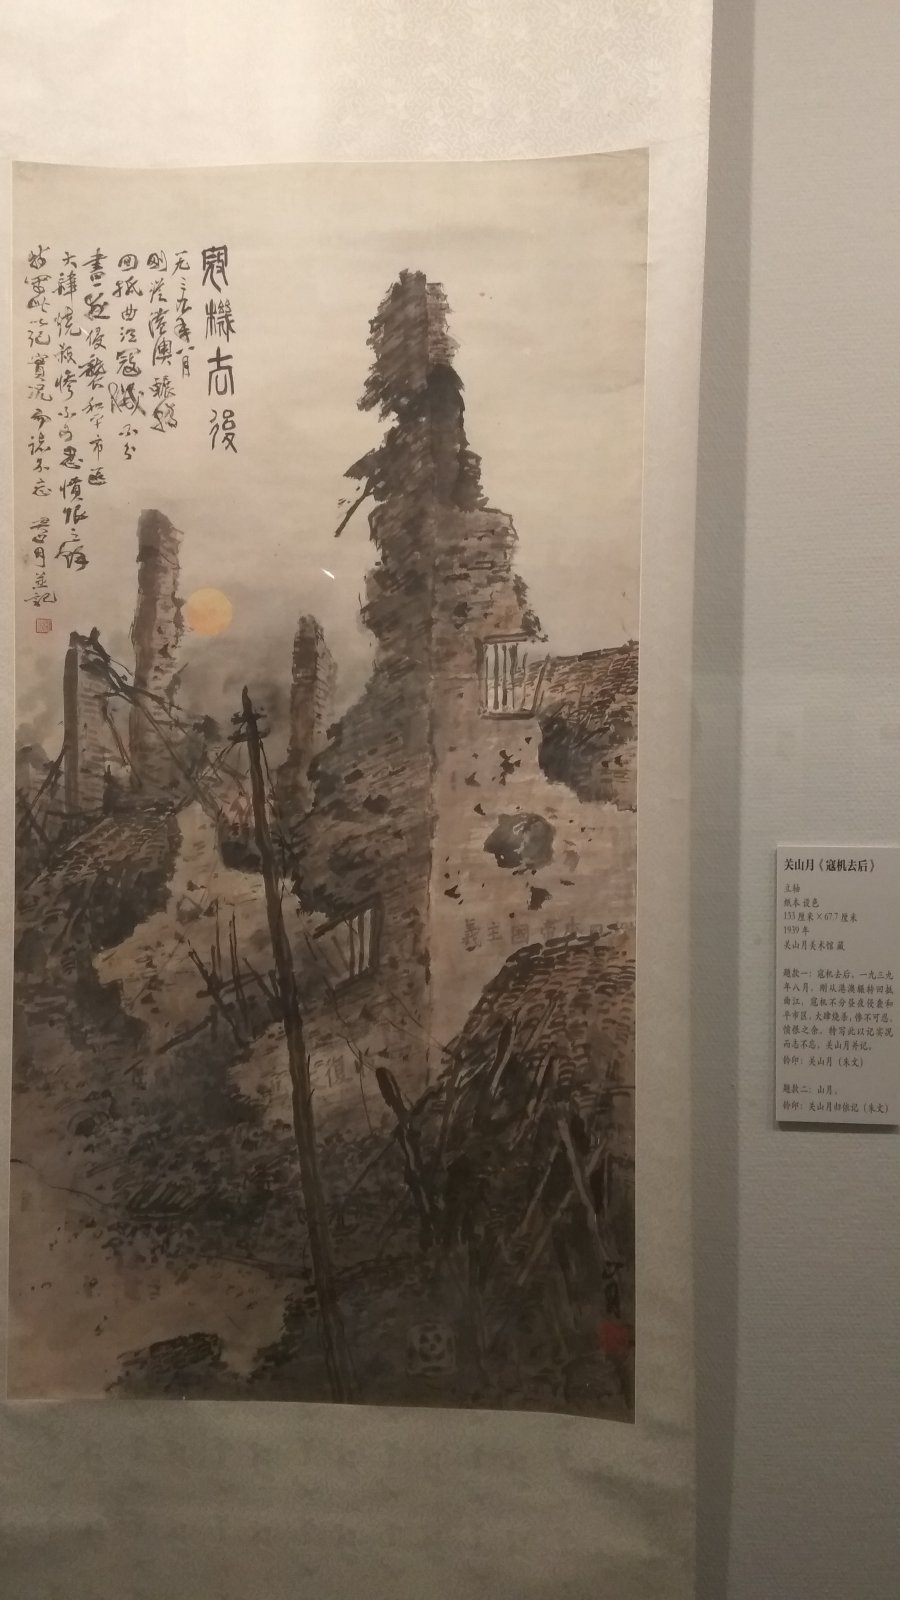 寇機去後
一九三九年八月
剛從港澳輾轉
回抵曲江寇機不分
晝夜侵襲和平市區
大肆燒殺慘不可忍憤恨之餘
特寫此以記實況而誌不忘 關山月並記
義主國帝
关山月《寇机去后》
立轴
纸本 设色
153 厘米×67.7 厘米
1939 年
关山月美术馆 藏
题款一：寇机去后。一九三九
年八月，刚从港澳辗转回抵
曲江，寇机不分昼夜侵袭和
平市区，大肆烧杀，惨不可忍，
愤恨之余，特写此以记实况
而志不忘，关山月并记。
钤印：关山月（朱文）
题款二：山月。
钤印：关山月归依记（朱文）